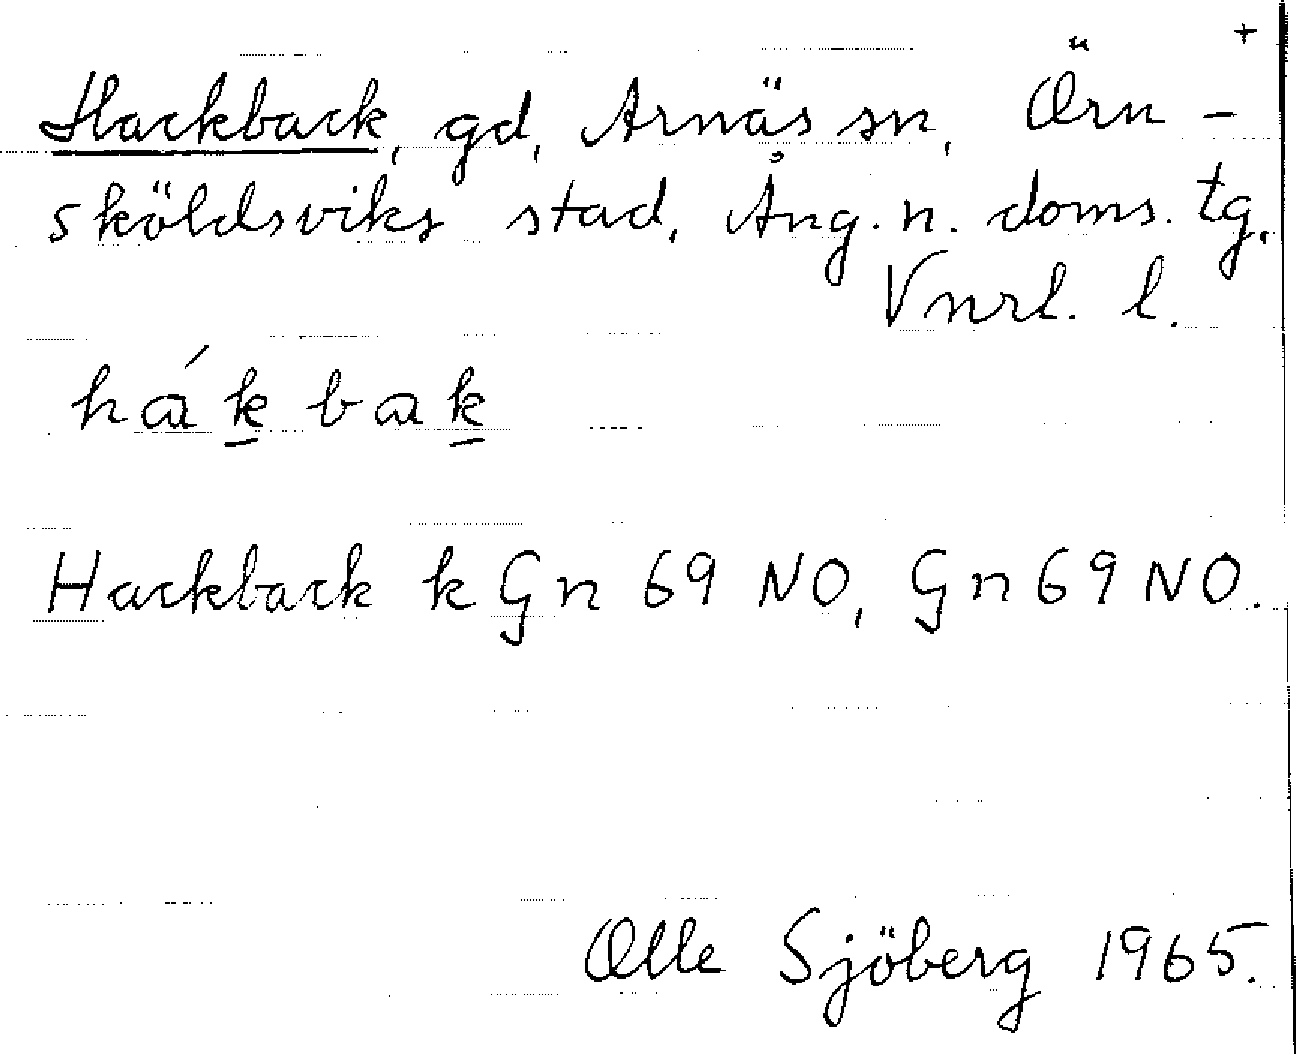 +
Hackback, gd, Arnäs sn, Örn-
sköldsviks stad, Ång. n. doms. tg.
Vnrl. l.
hákbak
Hackback k Gn 69 NO, Gn 69 NO.
Olle Sjöberg 1965.